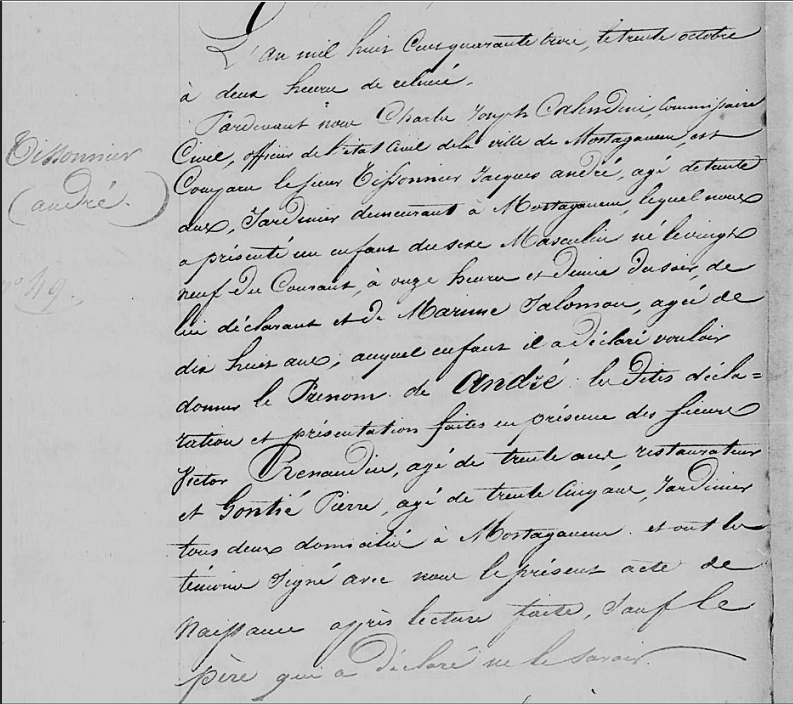 Tissonnier
(andré.)
n° 49.
L'an mil huit Cent quarante trois, le trente octobre
à deux heures de relevé.
Pardevant nous Charles Joseph Commissaire
Civil, officier de l'état Civil de la ville de Mostaganem, est
Comparu le sieur Tissonnier Jacques andré, agé de trente
deux, Jardinier demeurant à Mostaganem, lequel nous
a présenté un enfant du sexe Masculin né le vingt
neuf du Courant, à onze heures et demie du soir, de
lui déclarant et de Marinne Salomon, agée de
dix huit ans; auquel enfant il a déclaré vouloir
donner le Prénom de André. les dites décla=
ration et présentation faites en présence des sieurs
Victor Renaudin, agé de trente ans restaurateur
et Gontié Pierre, agé de trente cinq ans, Jardinier
tous deux domicilié à Mostaganem. et ont les
témoins signé avec nous le présent acte de
Naissance après lecture faite, sauf le
père qui a déclaré ne le savoir.